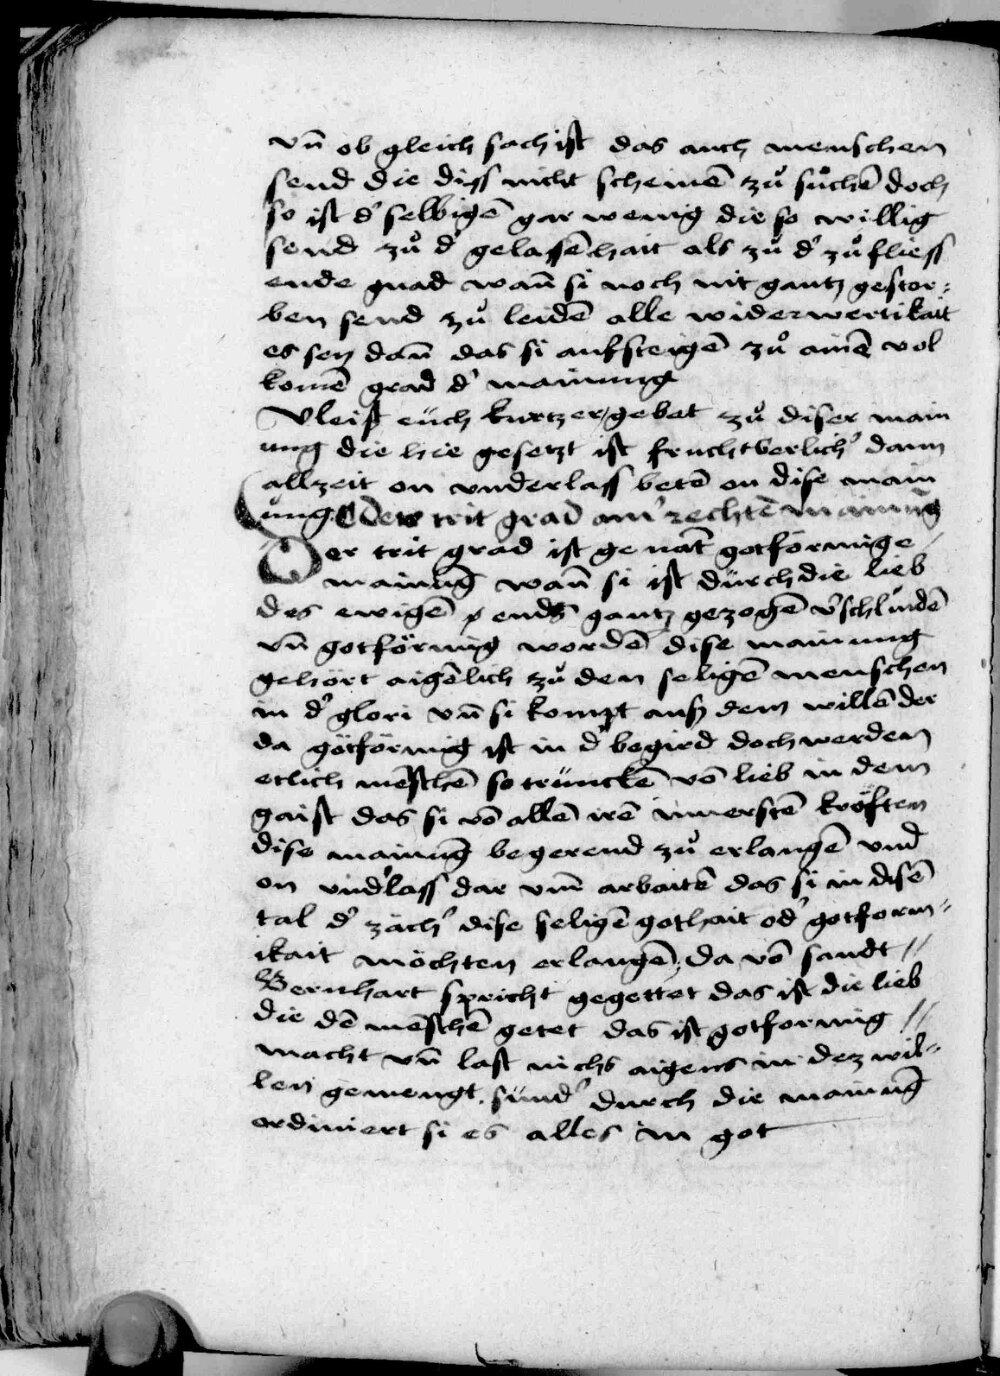 vn̄ ob gleich sach ist das auch menschen
send die diss nicht scheinē zů sůchē doch
so ist d' selbigē gar wenig die so willig
send zů d' gelassēhait als zů d' zů fliess
ende gnad wan̄ si noch nit gantz gestor⸗
ben send zů leidē alle widerwertikait
es sey dan̄ das si aufsteigē zů ainē vol
komē grad d' mainung
Vleist eüch kurtzer gebet zů diser main
ung die hie gesetzt ist fruchtberlich' dann
allzeit on vnderlass betē on dise main
ung Der trit grad ain' rechtē mainung
Der trit grad ist genāt gotförmige
mainūg wan̄ si ist dürch die lieb
des ewigē ends gantz gezogē v'schlundē
vn̄ gotförmig wordē dise mainung
gehört aigēlich zů den seligē menschen
in d' glori vn̄ si kompt auss dem willē der
da götförmig ist in d' begird doch werden
etlich mēschē so trünckē vō lieb in dem
gaist das si vō allē irē innerstē kröften
dise mainūg begerend zů erlangē vnd
on vnd'lass dar vm̄ arbaitē das si in disē
tal d' zäch' dise seligē gothait od' gotform⸗
ikait möchten erlangē, da vō sandt //
Bernhart spricht gegettet das ist die lieb
die dē mēschē getet das ist gotformig //
macht vn̄ last nichs aigens in dez wil⸗
len gemengt. sund' durch die mainūg
ordiniert si es alles in got